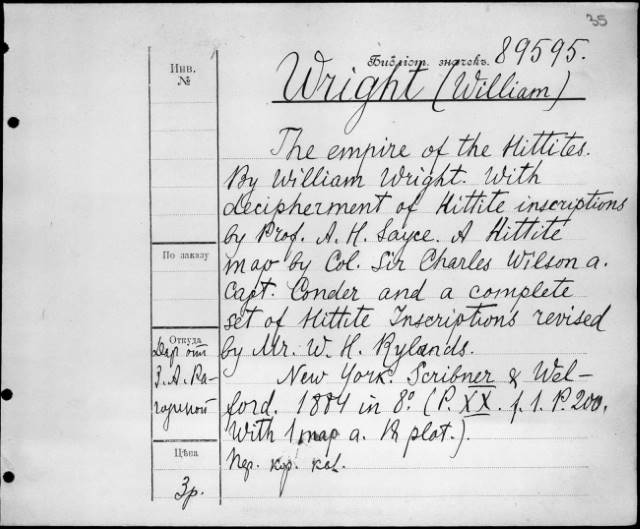 35
Инв.
№
Библіот. значекъ. 89595.
Wright (William)
The empire of the Hittites.
By William Wright. With
decipherment of Hittite inscriptions
by Prof. A. H. Sayce. A Hittite
map by Col. Sir Charles Wilson a.
Capt. Conder and a complete
set of Hittite Inscriptions revised
by Mr. W. H. Rylands.
New York. Scribner & Wel-
ford. 1884 in 8º. (P. XX. f. 1. P. 200.
With 1 map a. plat.).
Пер. кор. кол.
По заказу
Откуда
Дар от
З. А. Ра-
гозиной
Цѣна
3р.